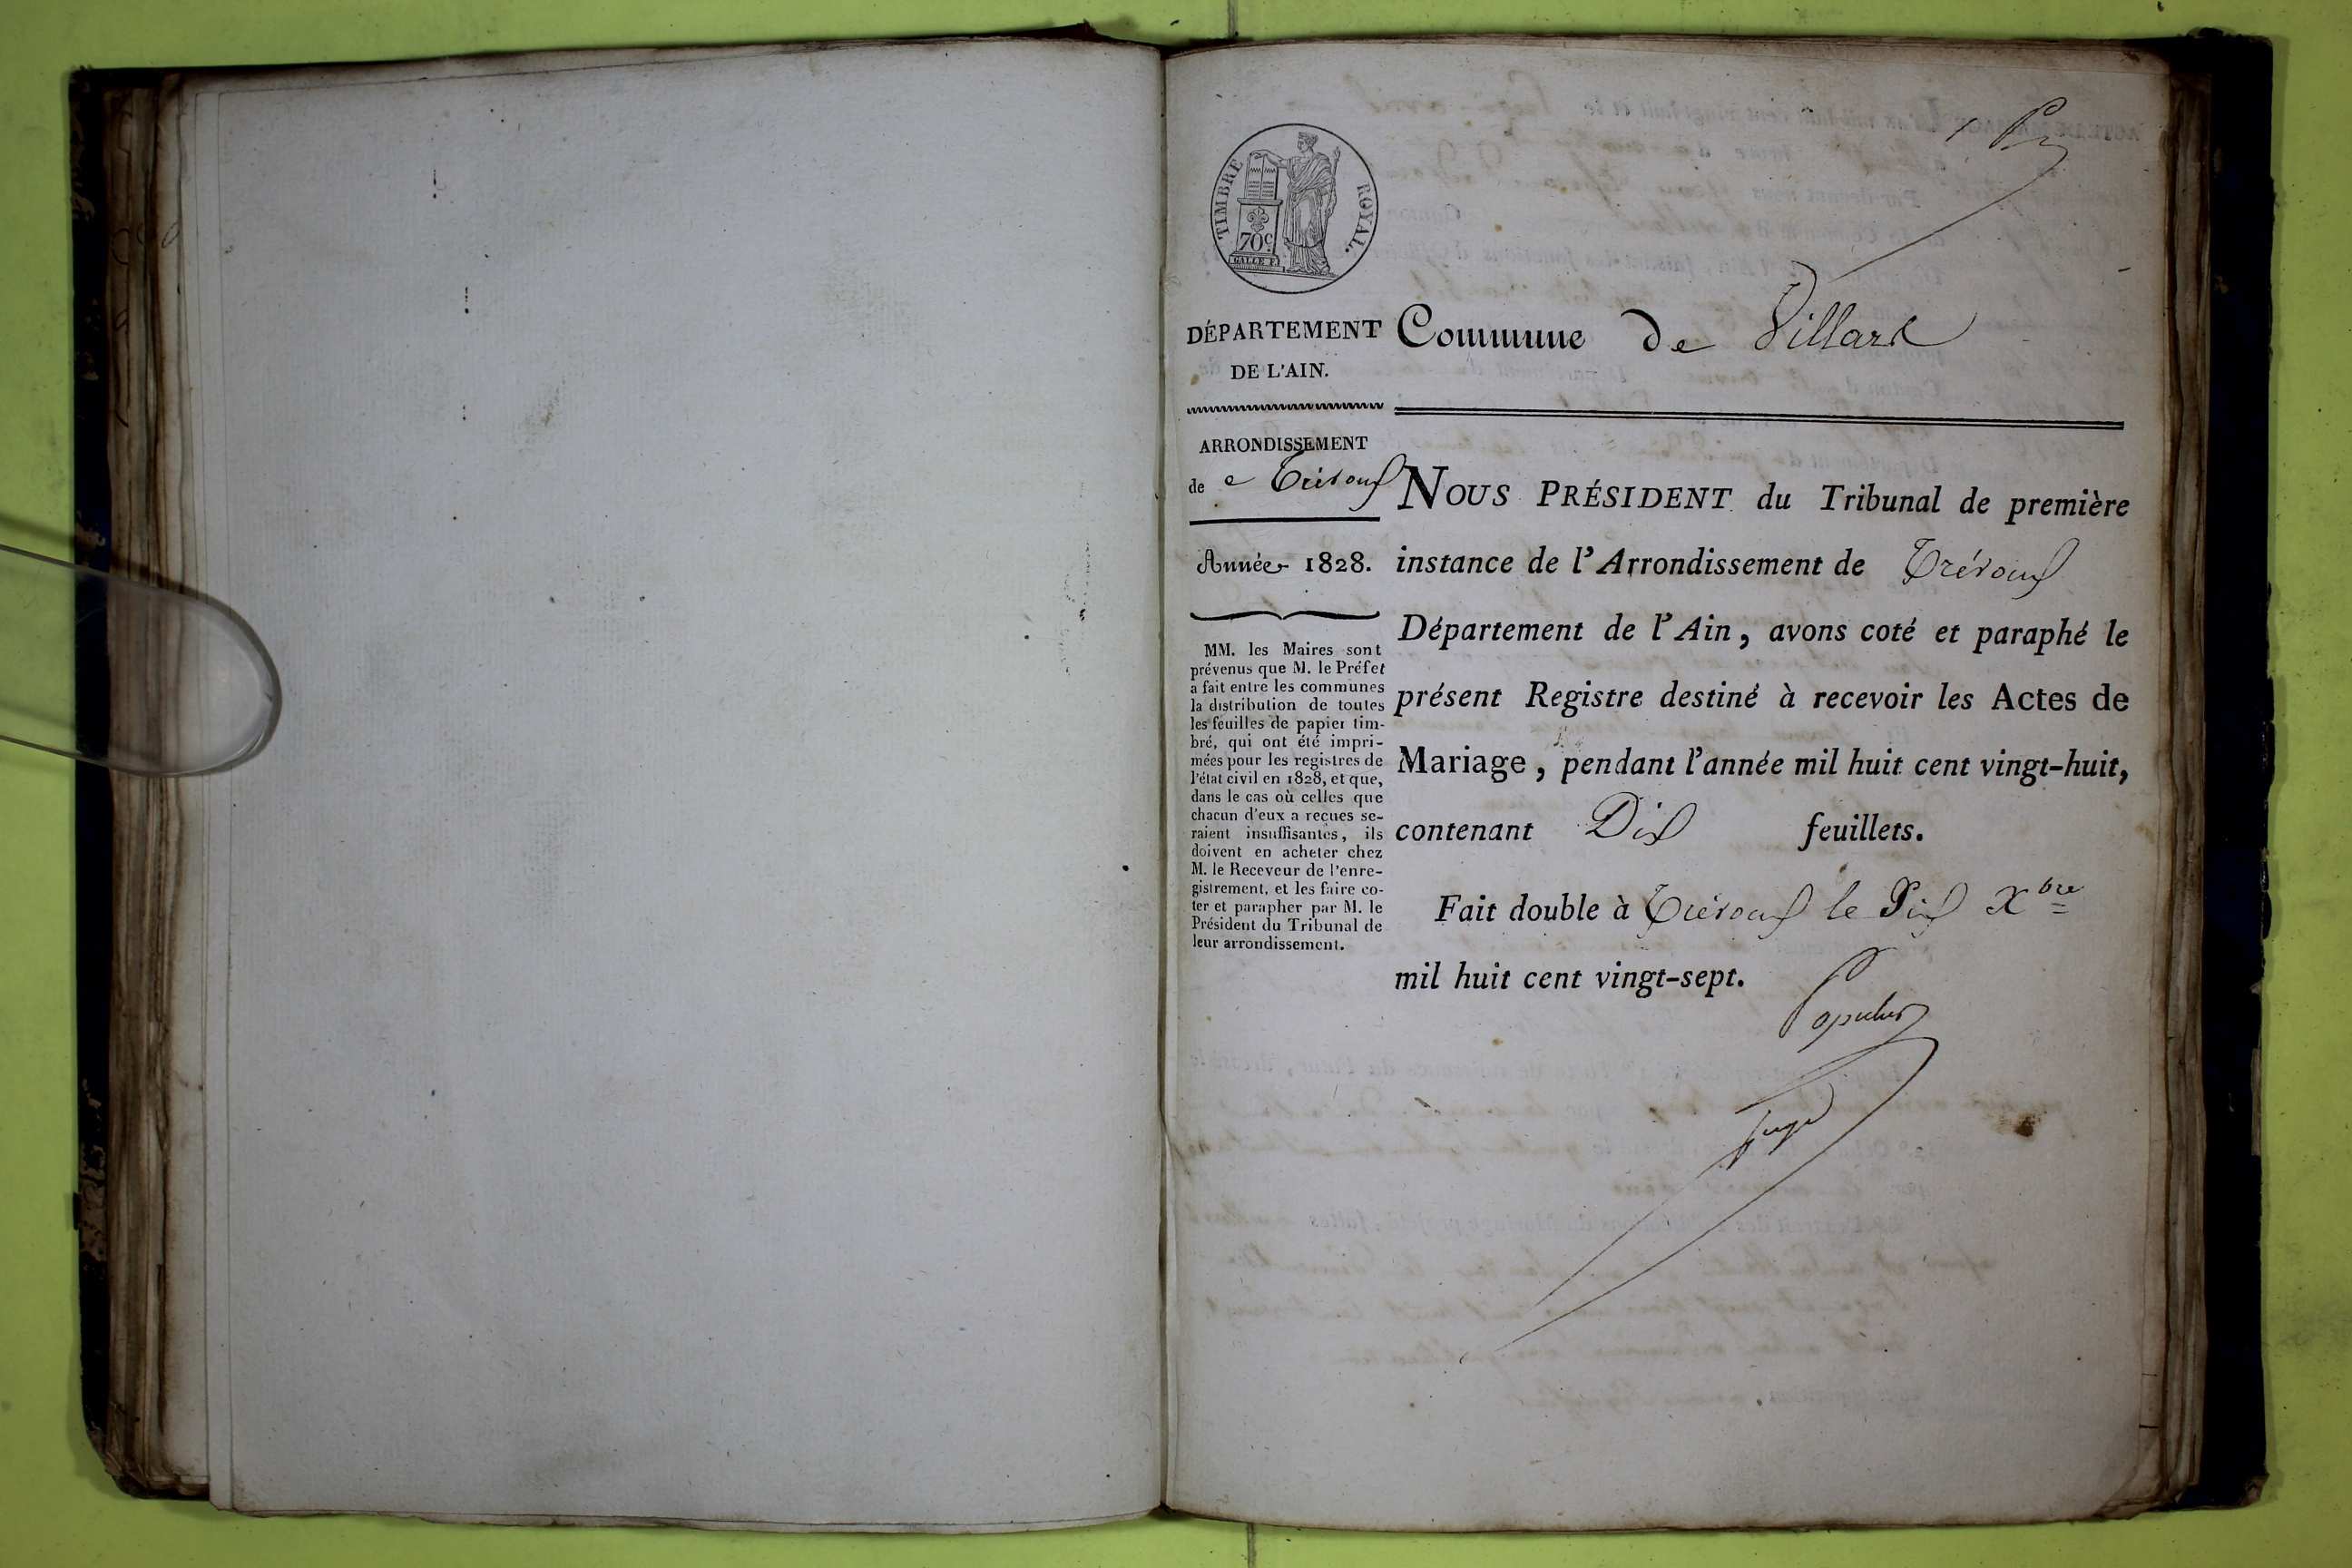 1
TIMBRE ROYAL.
70c
GALLE F.
DÉPARTEMENT
DE L'AIN.
ARRONDISSEMENT
de Trévoux
Année 1828.
MM. les Maires sont
prévenus que M. le Préfet
a fait entre les communes
la distribution de toutes
les feuilles de papier tim-
bré, qui ont été impri-
mées pour les registres de
l'état civil en 1828, et que,
dans le cas où celles que
chacun d'eux a reçues se-
raient insuffisantes, ils
doivent en acheter chez
M. le Receveur de l'enre-
gistrement, et les faire co-
ter et parapher par M. le
Président du Tribunal de
leur arrondissement.
Commune de Villars
NOUS PRÉSIDENT du Tribunal de première
instance de l'Arrondissement de Trévoux
Département de l'Ain, avons coté et paraphé le
présent Registre destiné à recevoir les Actes de
Mariage, pendant l'année mil huit cent vingt-huit,
contenant Dix feuillets.
Fait double à Trévoux le Dix Xbre
mil huit cent vingt-sept.
Populus
juge